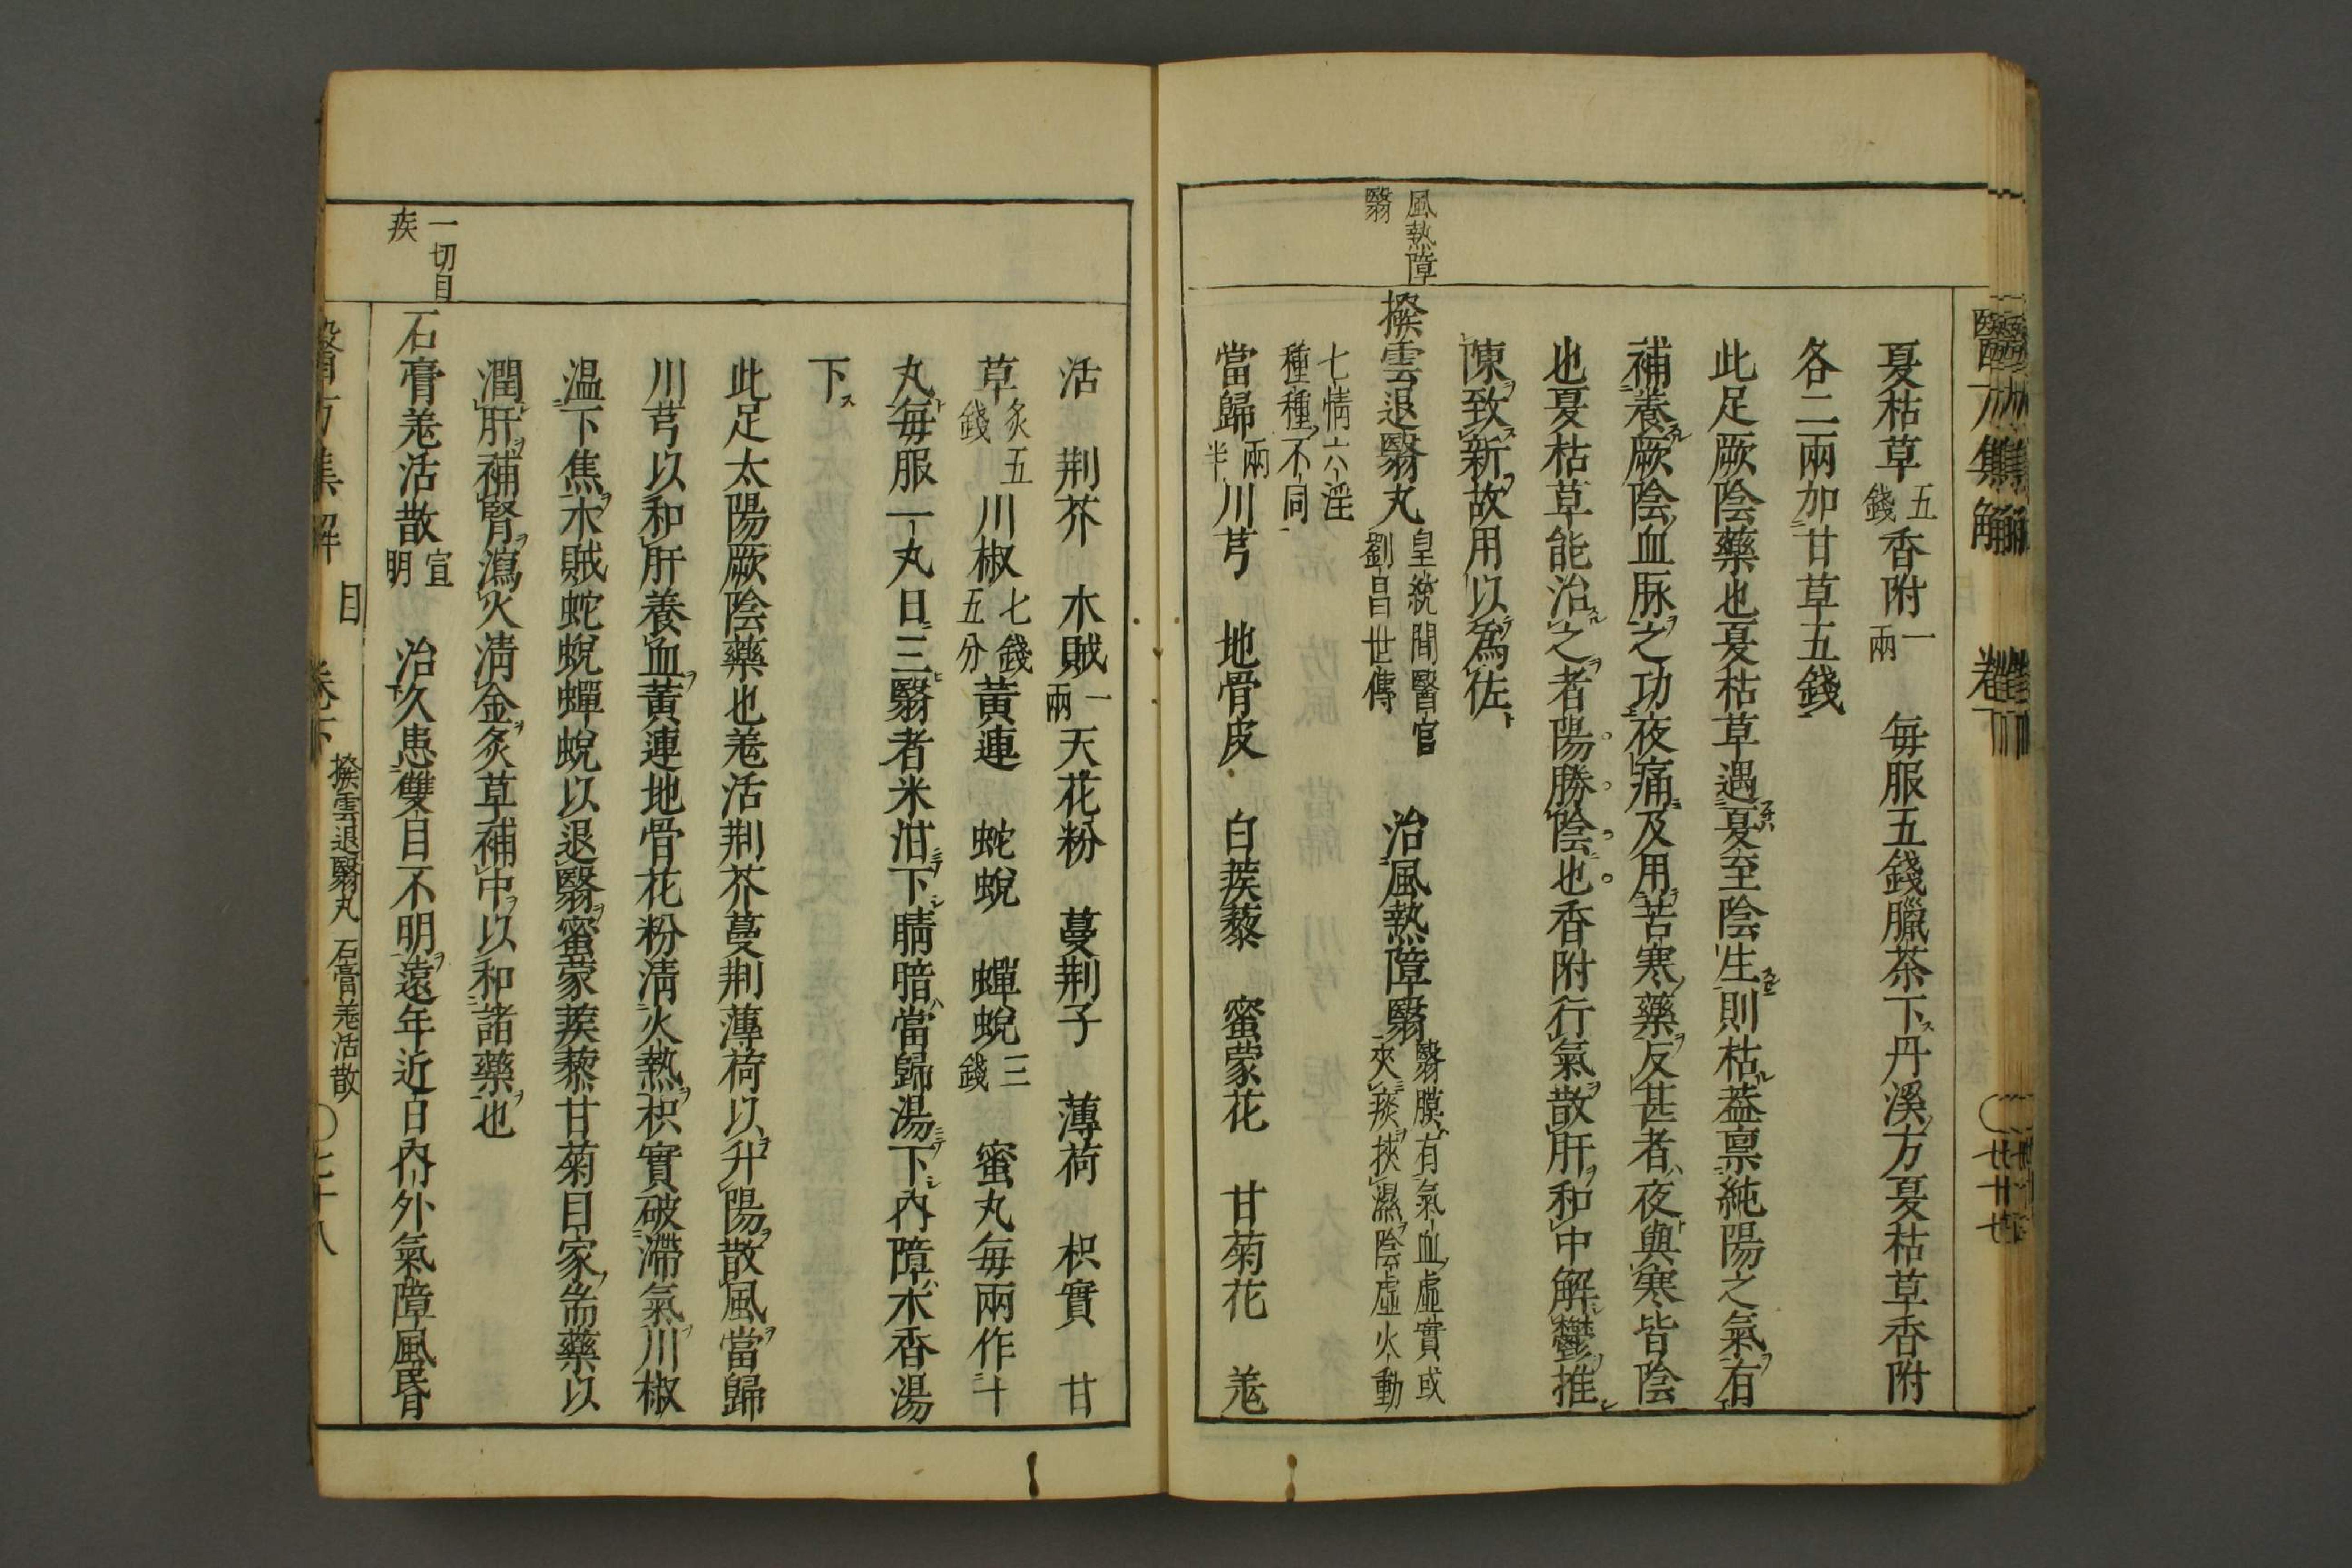 夏枯草五錢香附一兩 每服五錢臘茶下ス丹溪方夏枯草香附
各二兩加甘草五錢
此足厥陰藥也夏枯草遇夏至陰生則枯葢禀純陽之氣有
補養厥陰血脉之功夜痛及用苦寒藥反甚者夜與寒皆陰
也夏枯草能治之者陽勝陰也香附行氣散肝和中解鬱推
陳致新故用以爲佐
風熱障
翳
撥雲退翳丸 皇統間醫官劉昌世傳 治風熱障翳 翳膜有氣血虛實或夾痰挾濕陰虛火動
七情六淫種種不同
當歸兩半川芎 地骨皮 白蒺藜 蜜蒙花 甘菊花 羌
活 荆芥 木賊一兩天花粉 蔓荆子 薄荷 枳實 甘
草炙五錢川椒七錢五分黃連 蛇蛻 蟬蛻三錢 蜜丸每兩作十
丸每服一丸日三翳者米泔下睛暗當歸湯下內障木香湯
下ス
此足太陽厥陰藥也羌活荆芥蔓荆薄荷以升陽散風當歸
川芎以和肝養血黃連地骨花粉淸火熱枳實破滯氣川椒
温下焦木賊蛇蛻蟬蛻以退翳蜜蒙蒺藜甘菊目家耑藥以
潤肝補腎瀉火淸金炙草補中以和諸藥也
一切目
疾
石膏羌活散 宣明 治久患雙目不明遠年近日內外氣障風昬
目
撥雲退翳丸 石膏羌活散